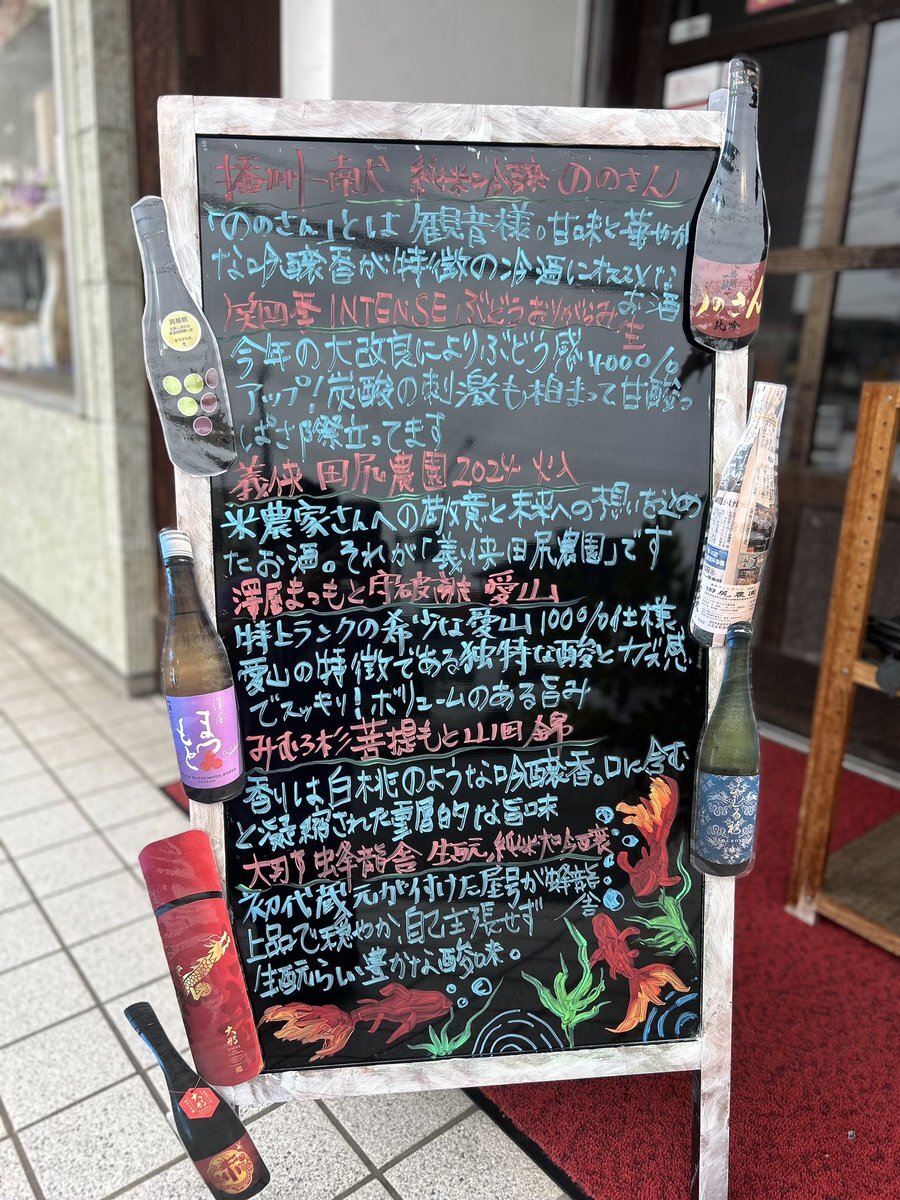 播州一献 純米吟醸 ののさん
「ののさん」とは 観音様。甘味と華やか
な吟醸香が特徴の冷酒にオススメな
お酒
笑四季 INTENSE ぶどうおりがらみ生
今年の大改良によりぶどう感 4000%
アップ！炭酸の刺激も相まって甘酸っ
ぱさ際立ってます
義侠 田尻農園 2024 火入
米農家さんへの敬意と未来への想いを込め
たお酒。それが「義侠田尻農園」です
澤屋まつもと守破離 愛山
特上ランクの希少な愛山100%仕様
愛山の特徴である独特な酸とガス感
でスッキリ！ボリュームのある旨み
みむろ杉 菩提もと山田錦
香りは白桃のような吟醸香。口に含む
と凝縮された重層的な旨味
大那 蜂龍舎 生酛 純米大吟醸
初代蔵元が付けた屋号が蜂龍舎
上品で穏やか、自己主張せず
生酛らしい豊かな酸味。
ののさん
純吟
再解釈
生
澤屋
まつもと
田尻農園
みむろ杉
大那